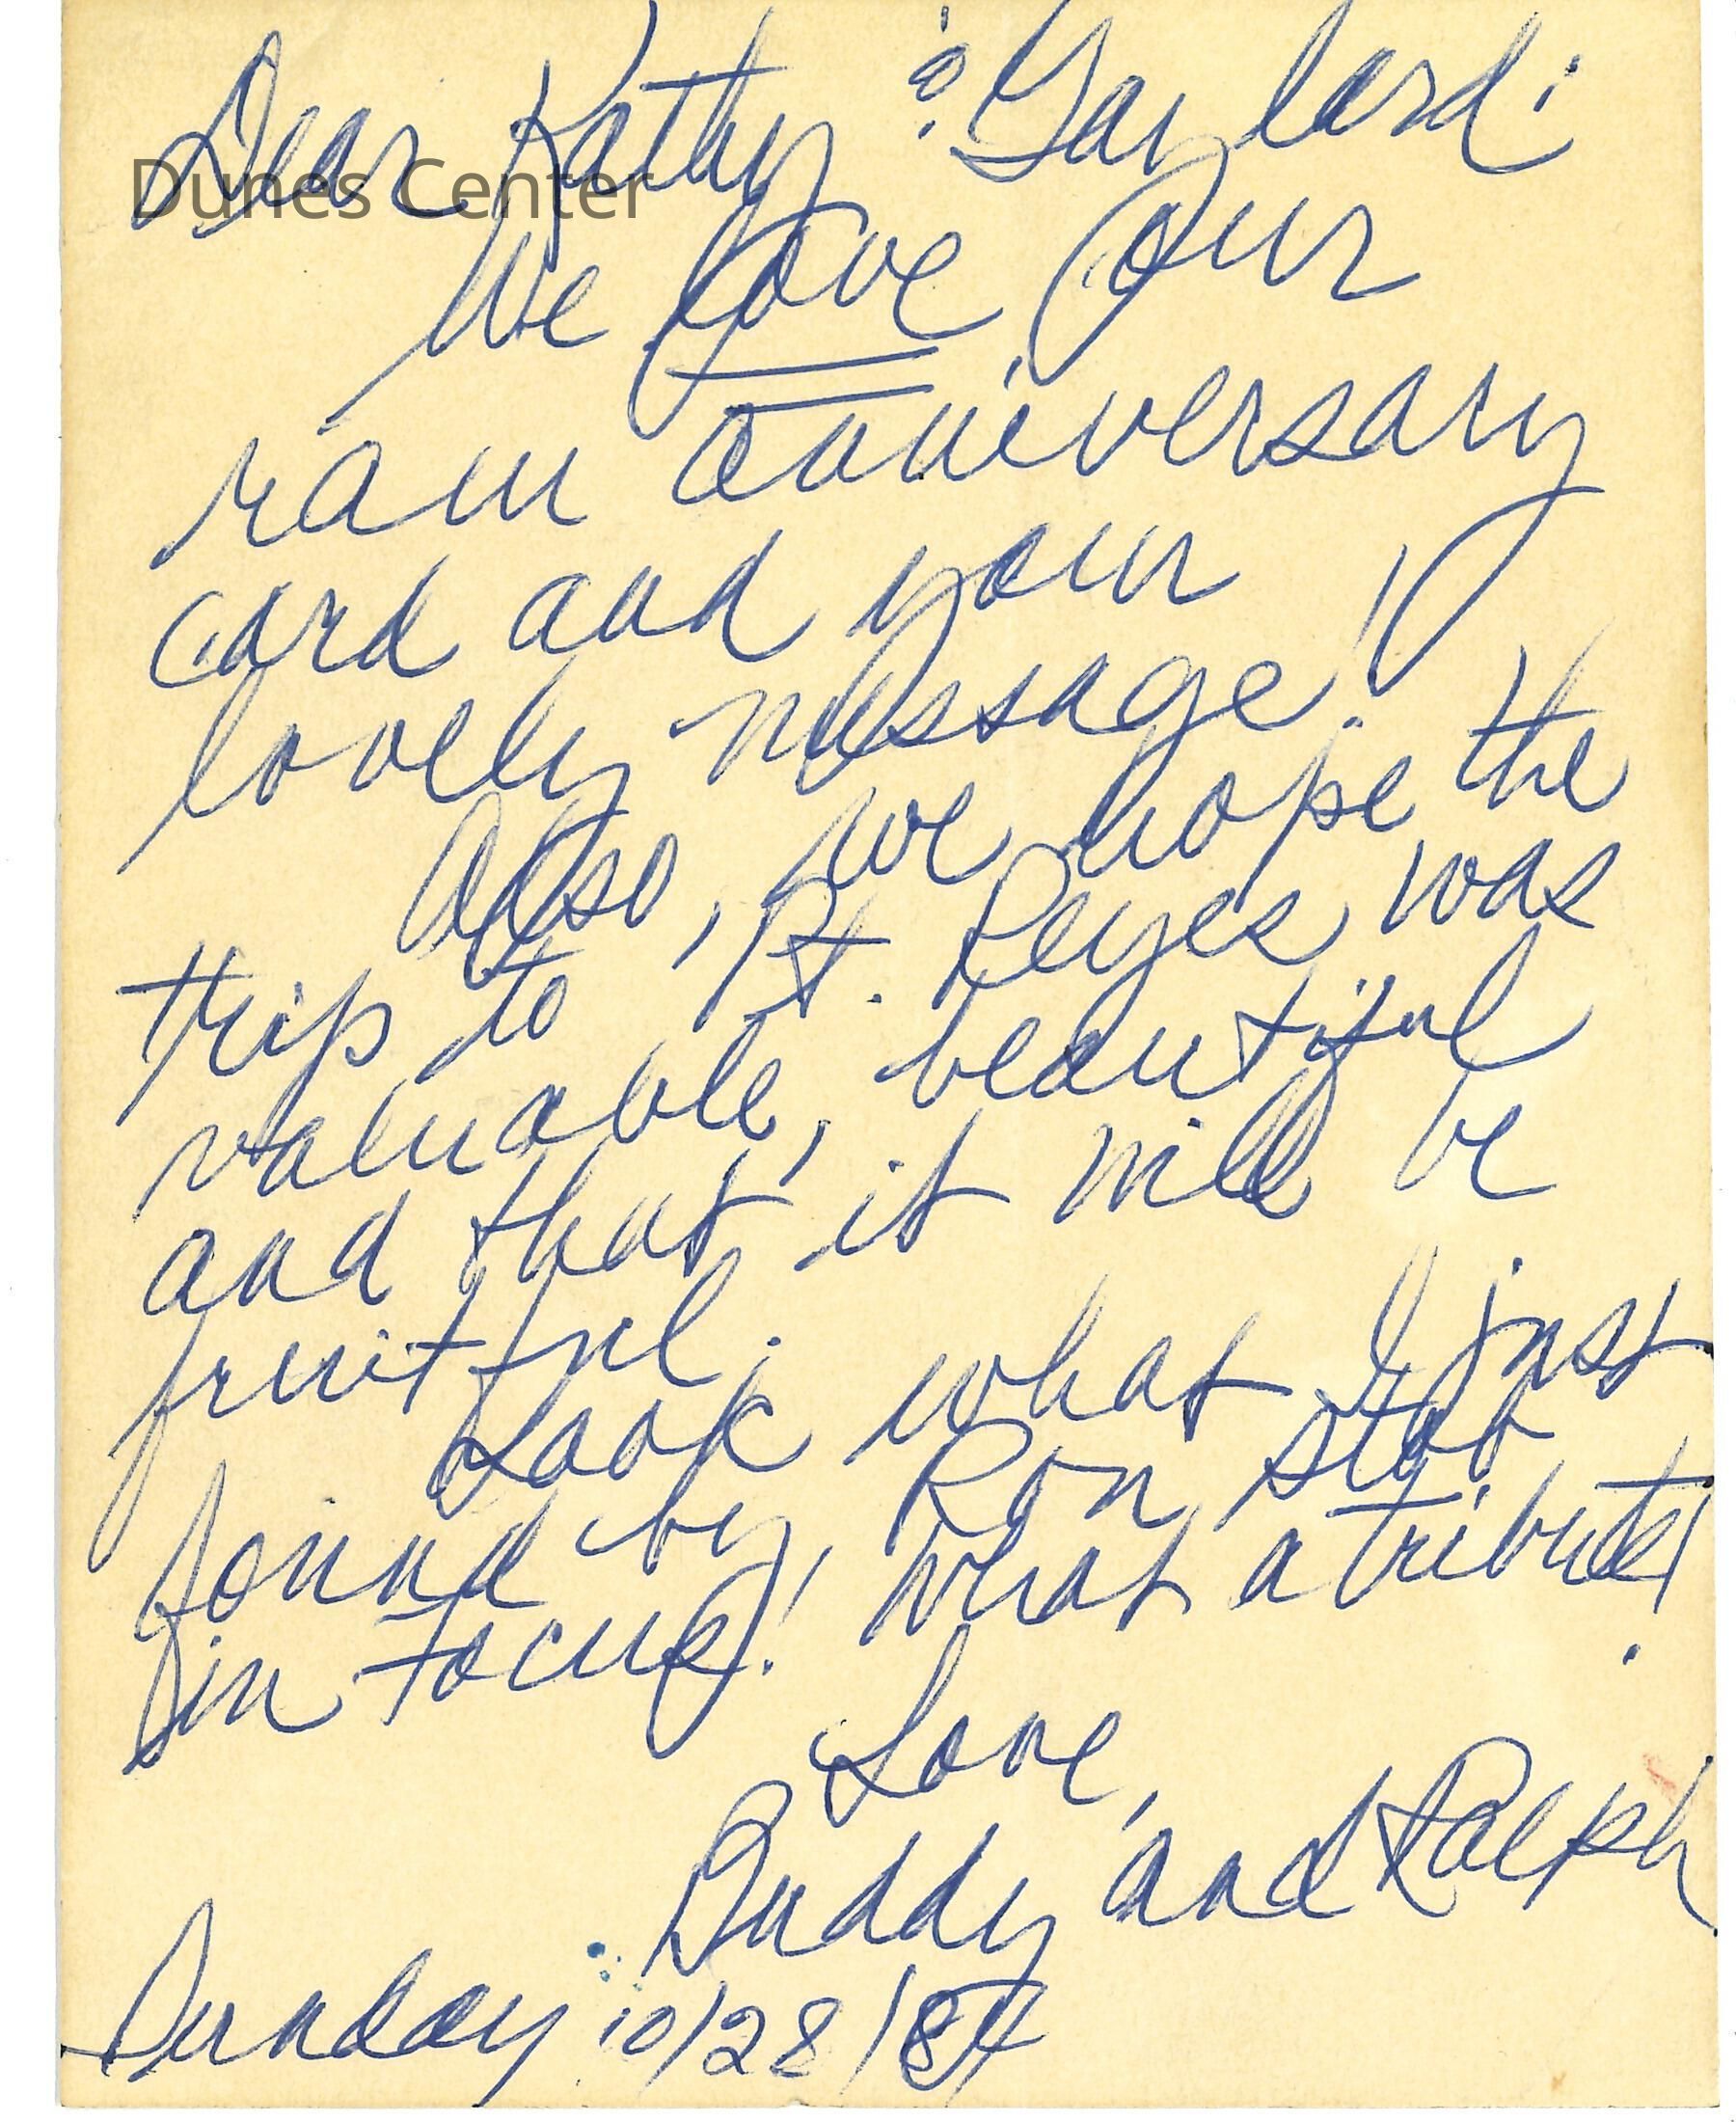 Dear Kathy & Gaylord:
Dunes Center
We love our
ram anniversary
card and your
lovely message!
Also, we hope the
trip to Pt. Reyes was
valuable, beautiful
and that it will be
fruitful.
Look what I just
found by Ron
in Focus! What a tribute!
Love,
Buddy and Ralph
Sunday 10/28/84